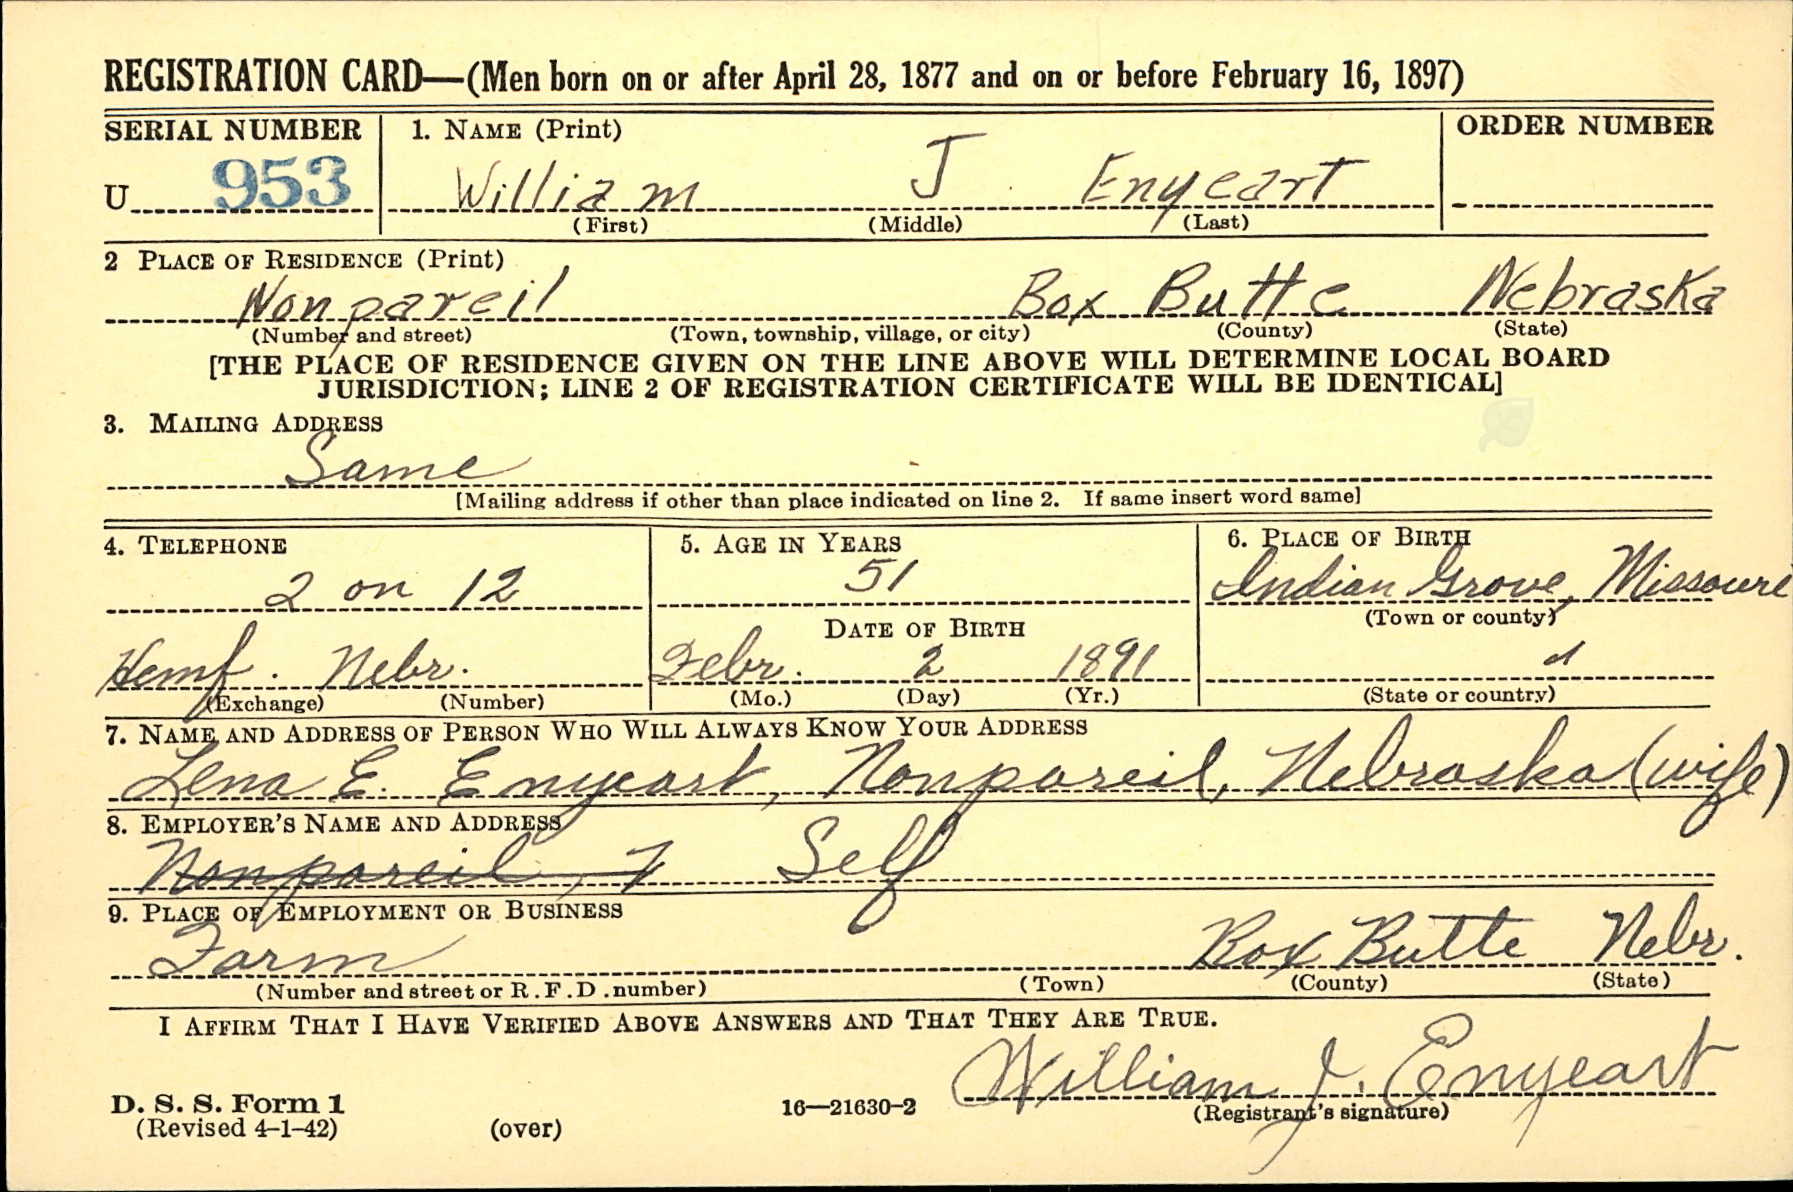 REGISTRATION CARD—(Men born on or after April 28, 1877 and on or before February 16, 1897)
SERIAL NUMBER 1. NAME (Print) ORDER NUMBER
U 953 William J Enyeart
(First) (Middle) (Last)
2 PLACE OF RESIDENCE (Print)
Nonpareil Box Butte Nebraska
(Number and street) (Town, township, village, or city) (County) (State)
[THE PLACE OF RESIDENCE GIVEN ON THE LINE ABOVE WILL DETERMINE LOCAL BOARD
JURISDICTION; LINE 2 OF REGISTRATION CERTIFICATE WILL BE IDENTICAL]
3. MAILING ADDRESS
Same
[Mailing address if other than place indicated on line 2. If same insert word same]
4. TELEPHONE 5. AGE IN YEARS 6. PLACE OF BIRTH
2 on 12 51 Indian Grove, Missouri
(Town or county)
DATE OF BIRTH
Hemf. Nebr. Febr. 2 1891
(Exchange) (Number) (Mo.) (Day) (Yr.) (State or country)
7. NAME AND ADDRESS OF PERSON WHO WILL ALWAYS KNOW YOUR ADDRESS
Lena E. Enyeart, Nonpareil, Nebraska (wife)
8. EMPLOYER'S NAME AND ADDRESS
Nonpareil, Self
9. PLACE OF EMPLOYMENT OR BUSINESS
Farm Box Butte Nebr.
(Number and street or R.F.D. number) (Town) (County) (State)
I AFFIRM THAT I HAVE VERIFIED ABOVE ANSWERS AND THAT THEY ARE TRUE.
William J. Enyeart
D. S. S. Form 1 16—21630-2 (Registrant's signature)
(Revised 4-1-42) (over)